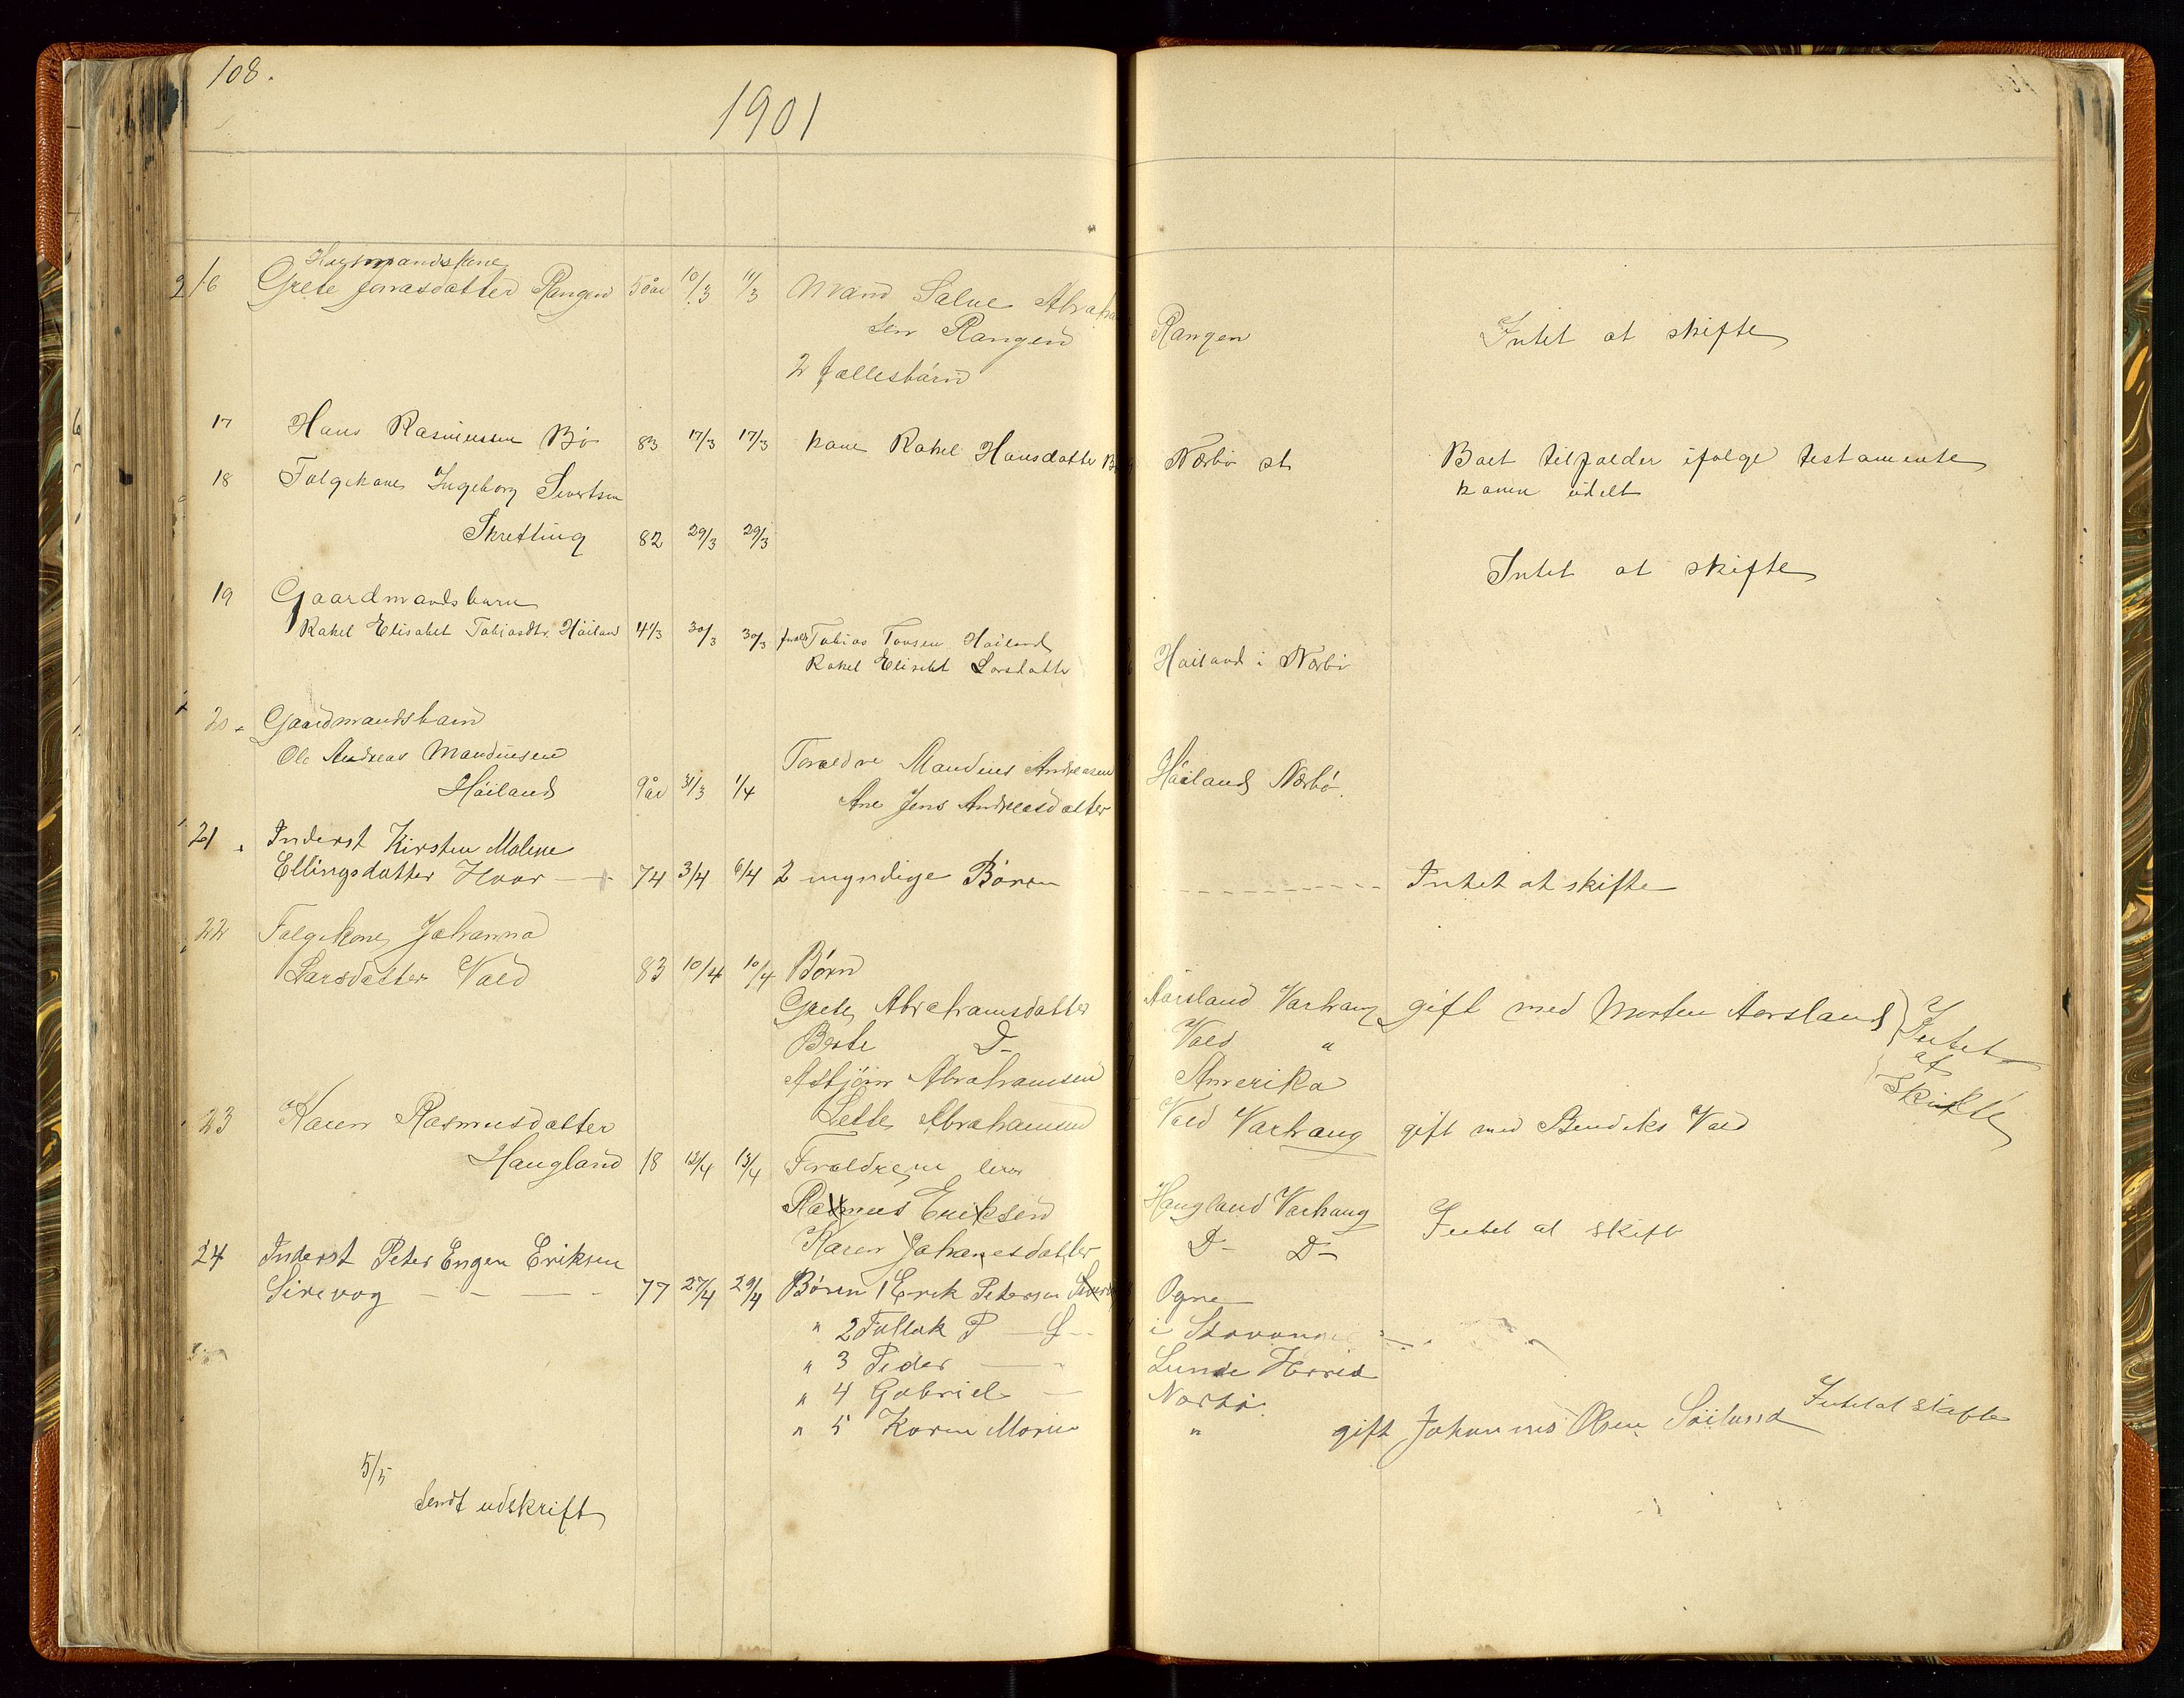 108.
1901
16 Husmandskone
Grete Jonasdatter Rangen 50 aar 10/3 11/3 Mand Salve Abraham
sen Rangen Rangen Intet at skifte
2 fællesbørn
17 Hans Rasmussen Bø 83 17/3 17/3 kone Rakel Hansdatter Bø Nærbø st Boet tilfalder ifølge testamente
konen udelt
18 Folgekone Ingeborg Sivertsen
Skretting 82 29/3 29/3 Intet at skifte
19 Gaardmandsbarn
Rakel Elisabet Tobiasdtr. Höiland 4 1/3 30/3 30/3 Tobias Tonsen Höiland
Rakel Elisabet Larsdatter Höiland i Nærbø
20 Gaardmandsbarn
Ole Andreas Maudiusen
Höiland 9 år 31/3 1/4 Foreldre Maudius Andreasen Höiland Nærbø.
Ane Jens Andreasdatter
21 Inderst Kirsten Malene
Ellingsdatter Haar 74 3/4 6/4 2 myndige Børn Intet at skifte
22 Folgekone Johanna
Larsdatter Vold 83 10/4 10/4 Børn
Grete Abrahamsdatter Aarsland Varhaug gift med Morten Aarsland } Intet
Berte D- Vold " at
Asbjörn Abrahamsen Amerika skifte
Abrahamsen Vold Varhaug gift med Bendiks Vold
23 Karen Rasmusdatter
Haugland 18 12/4 13/4 Foraldrene lever
Rasmus Eriksen Haugland Varhaug Intet at skifte
Karen Johanesdatter D- D-
24 Inderst Peter Engen Eriksen
Sirevog 77 27/4 29/4 Børn 1 Erik Petersen Ogne
" 2 Tollak P — S — i Stavanger
" 3 Peder — Lunde Herred
" 4 Gabriel — Nærbø.
" 5 Karen Marie " gift Johannes Olsen Intet at skifte
5/5
Sendt udskrift